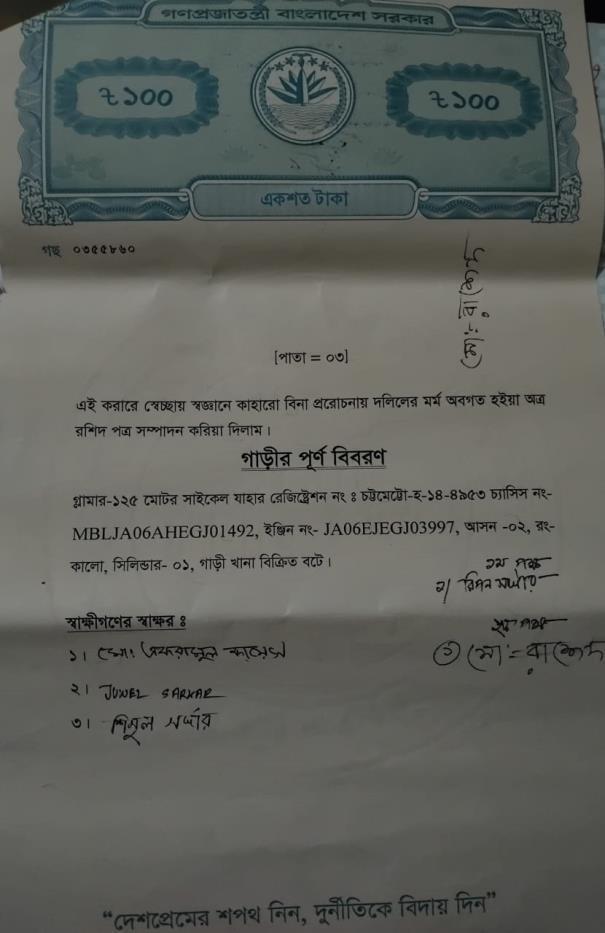 গণপ্রজাতন্ত্রী বাংলাদেশ সরকার
৳১০০ ৳১০০
একশত টাকা
গছ ০৩৫৫৮৬০
মোঃ রাশেদ
[পাতা = ০৩]
এই করারে স্বেচ্ছায় স্বজ্ঞানে কাহারো বিনা প্ররোচনায় দলিলের মর্ম অবগত হইয়া অত্র
রশিদ পত্র সম্পাদন করিয়া দিলাম।
গাড়ীর পূর্ণ বিবরণ
গ্লামার-১২৫ মোটর সাইকেল যাহার রেজিষ্ট্রেশন নং ঃ চট্টমেট্রো-হ-১৪-৪৯৫৩ চ্যাসিস নং-
MBLJA06AHEGJ01492, ইঞ্জিন নং- JA06EJEGJ03997, আসন -০২, রং-
কালো, সিলিন্ডার- ০১, গাড়ী খানা বিক্রিত বটে।
১ম পক্ষ
১/ রিপন সর্দার
স্বাক্ষীগণের স্বাক্ষর ঃ
২য় পক্ষ
১। মোঃ
২। JUWEL SARKAR
৩। শিমুল সর্দার
মোঃ রাশেদ
“দেশপ্রেমের শপথ নিন, দুর্নীতিকে বিদায় দিন”